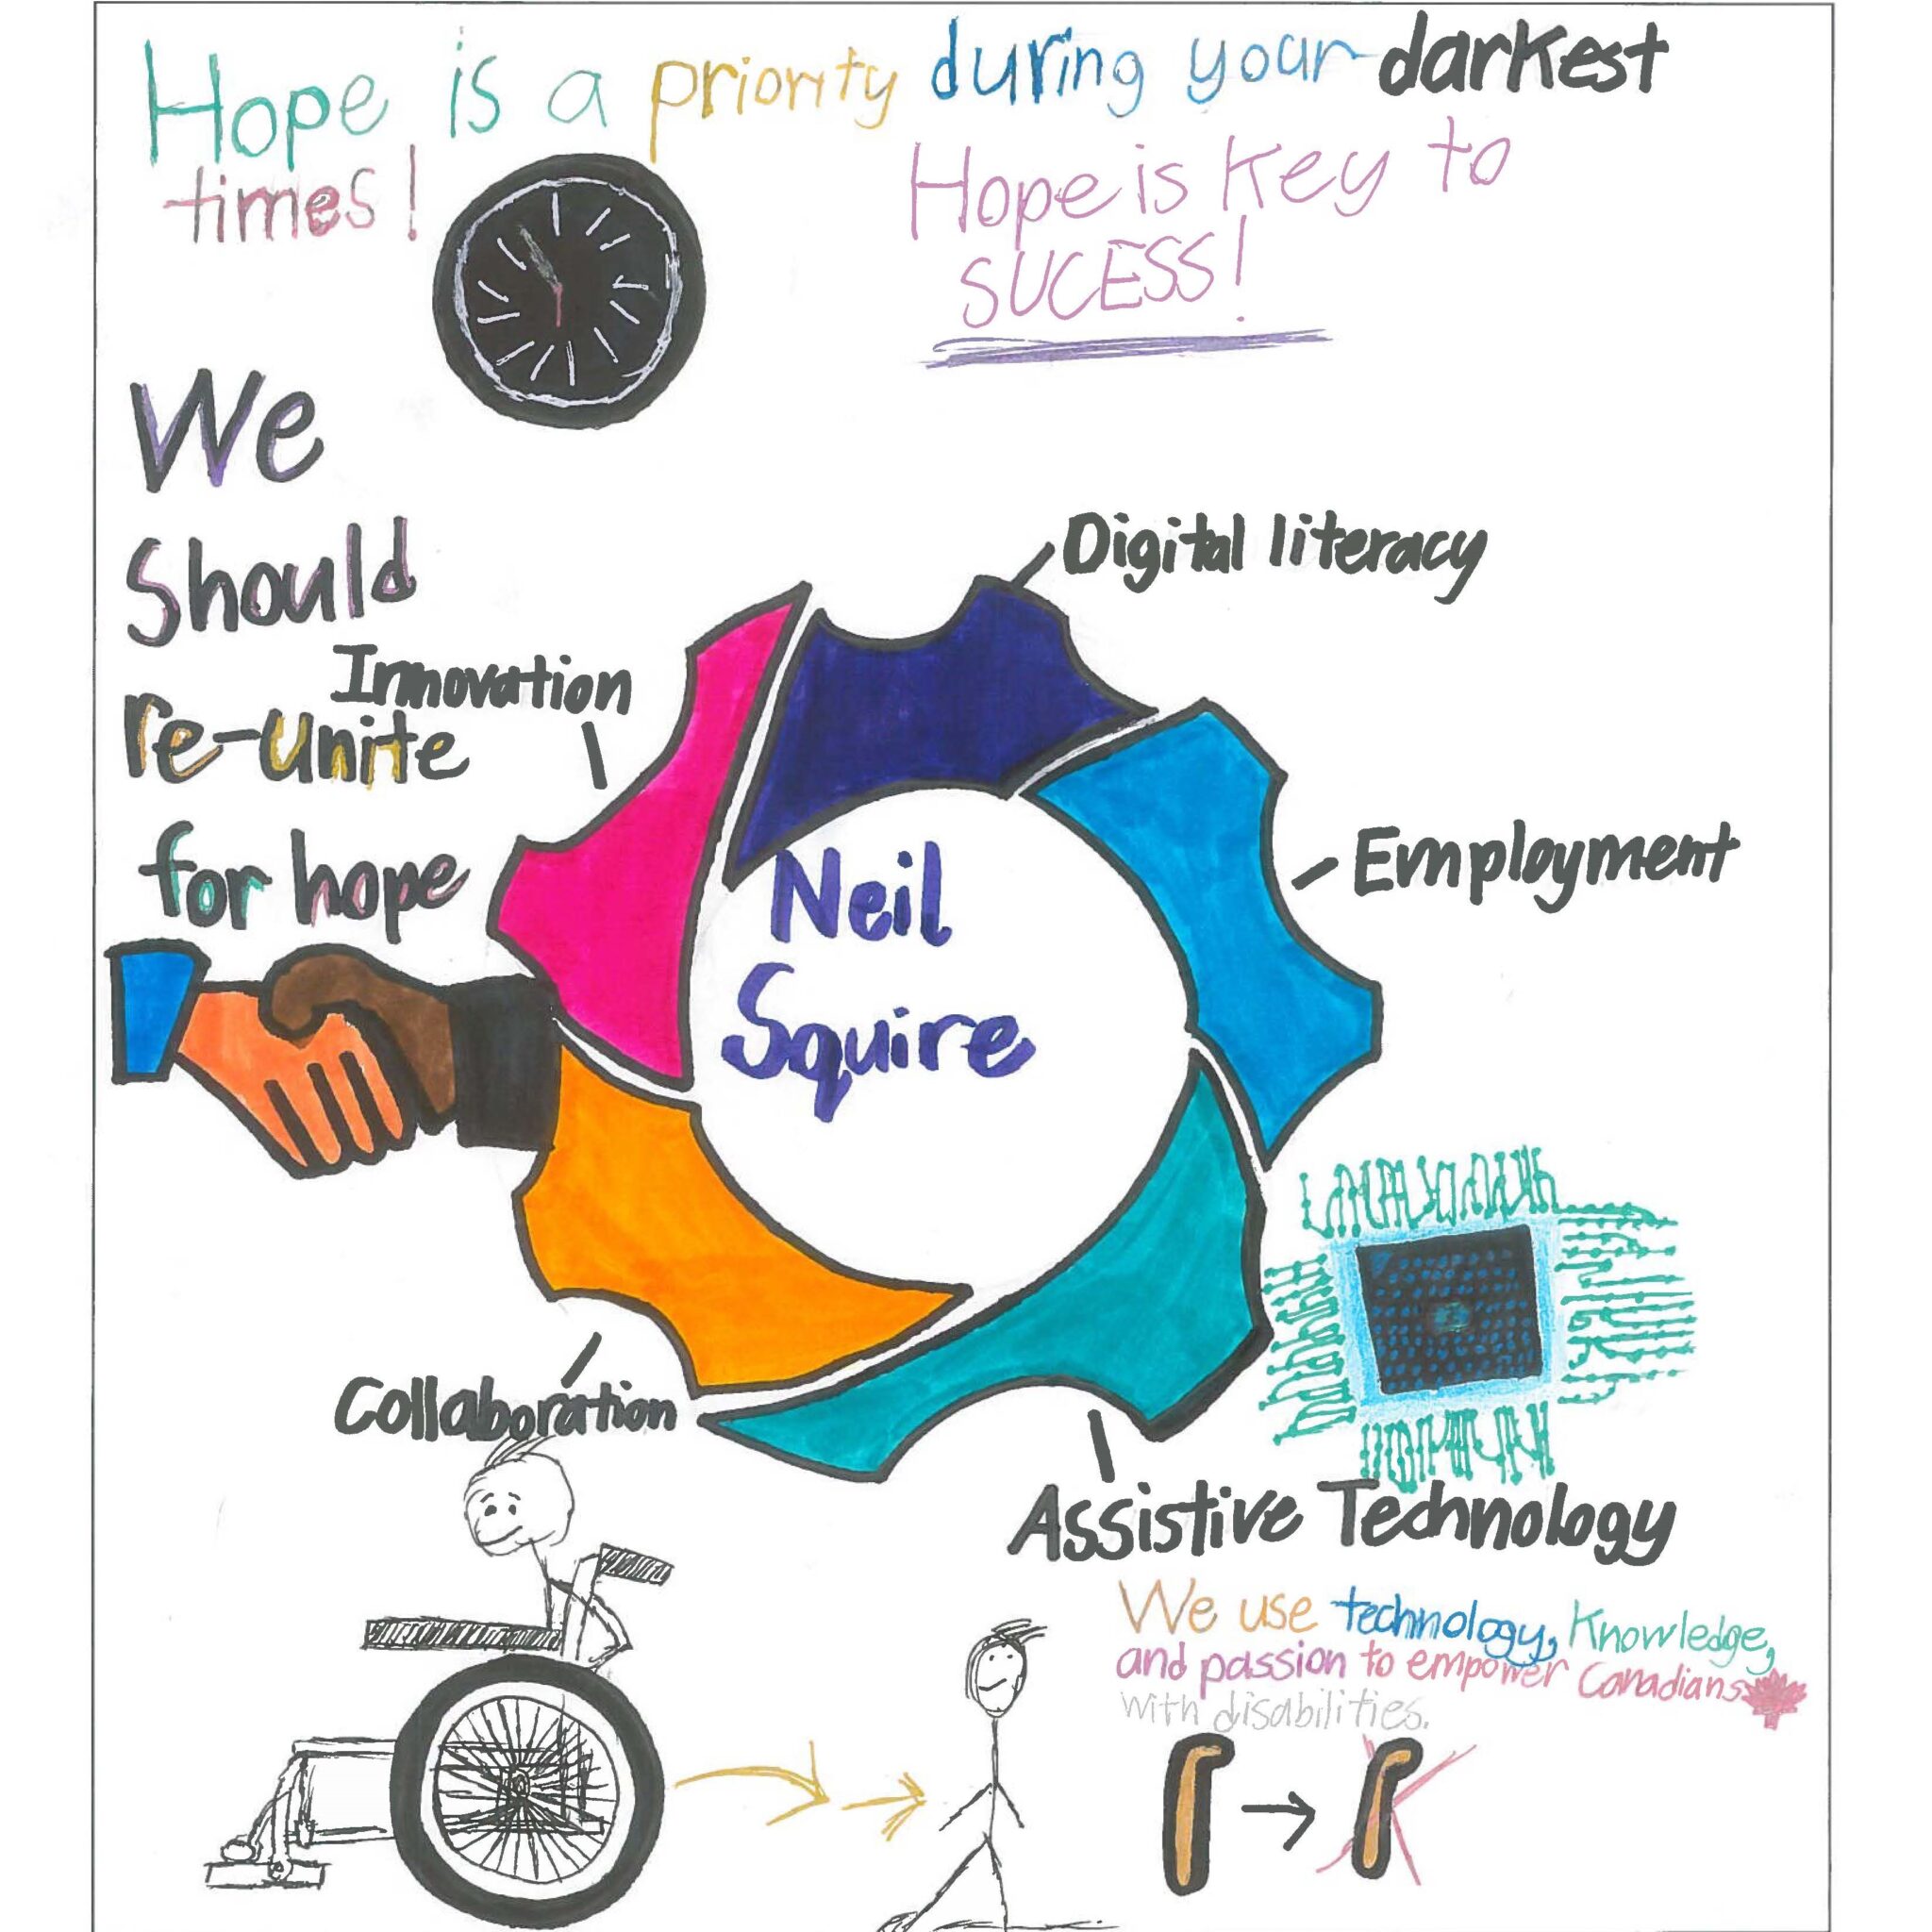 Hope is a priority during your darkest
times!
Hope is Key to
SUCESS!
We
Should
re-unite
for hope
Innovation
Digital literacy
Employment
Neil
Squire
Collaboration
Assistive Technology
We use technology, Knowledge,
and passion to empower Canadians
with disabilities.